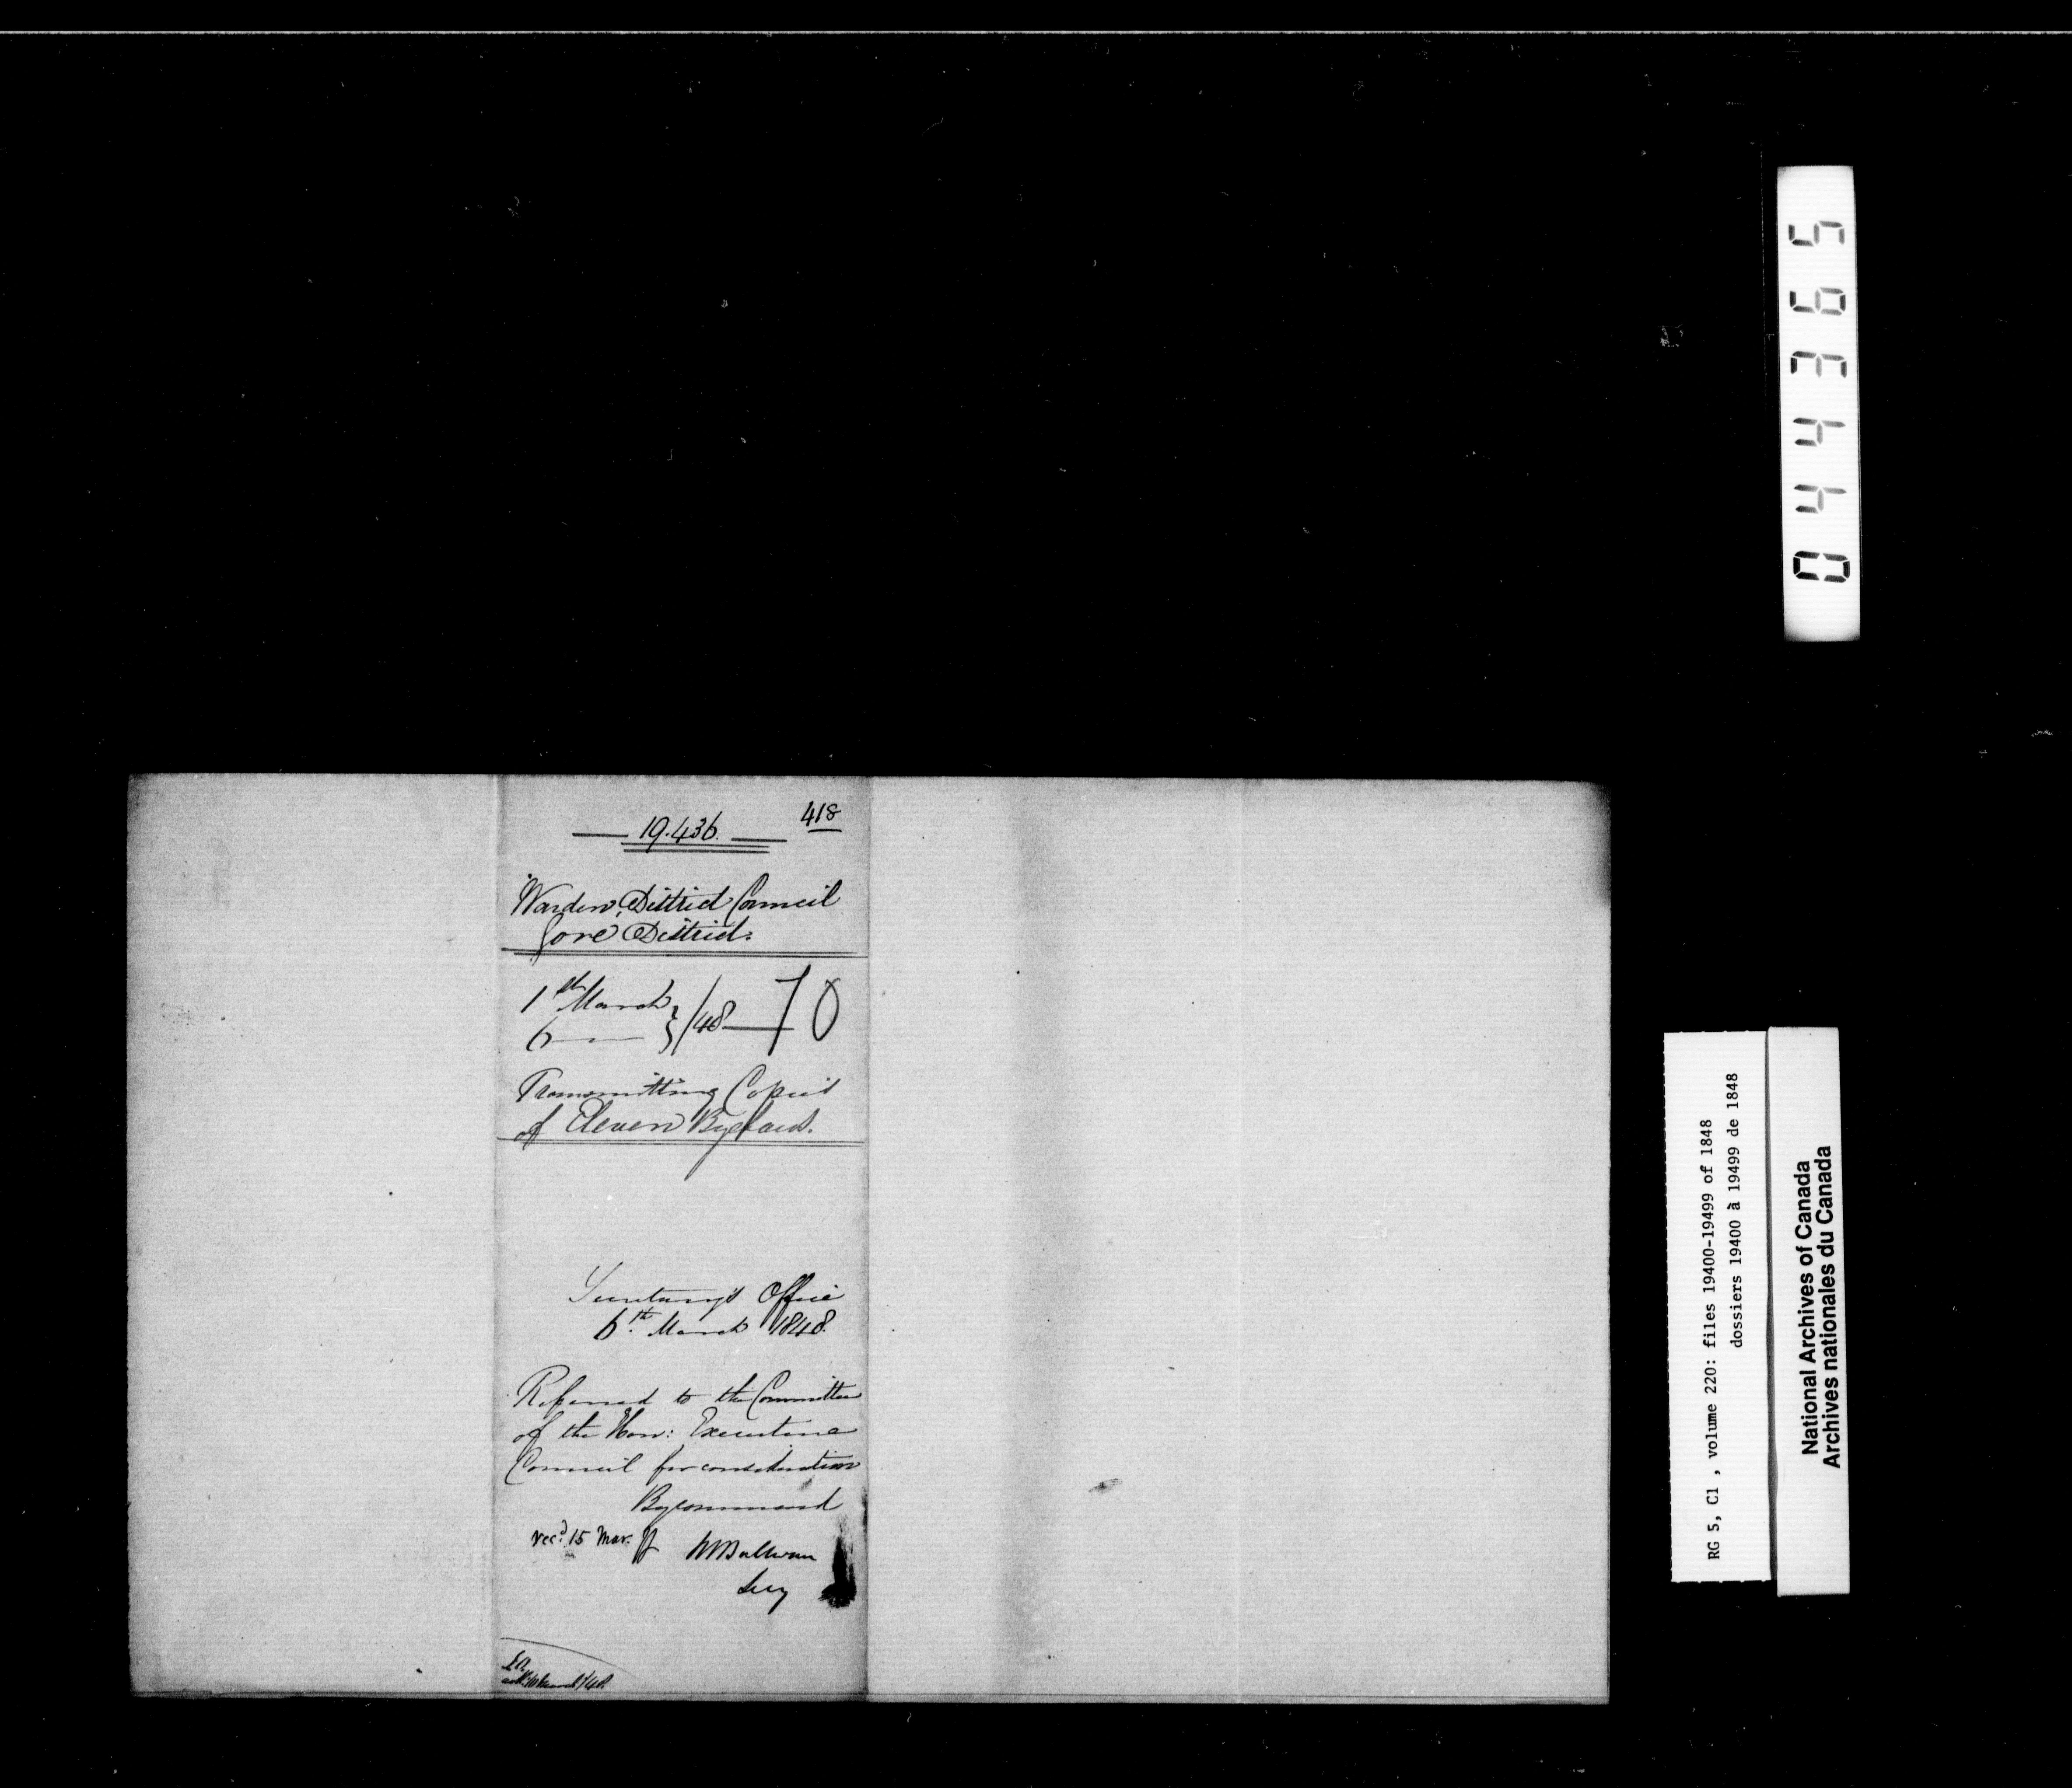 418
19.436.
Warden, District Council
Gore District.
1st March
6 — } /48 — 70
Transmitting Copies
of Eleven Byelaws.
Secretary's Office
6th March 1848.
Referred to the Committee
of the Hon: Executive
Council for consideration
By command
recd 15 Mar.
RB Sullivan
Secy
044365
RG 5, C1 , volume 220: files 19400-19499 of 1848
dossiers 19400 à 19499 de 1848
National Archives of Canada
Archives nationales du Canada